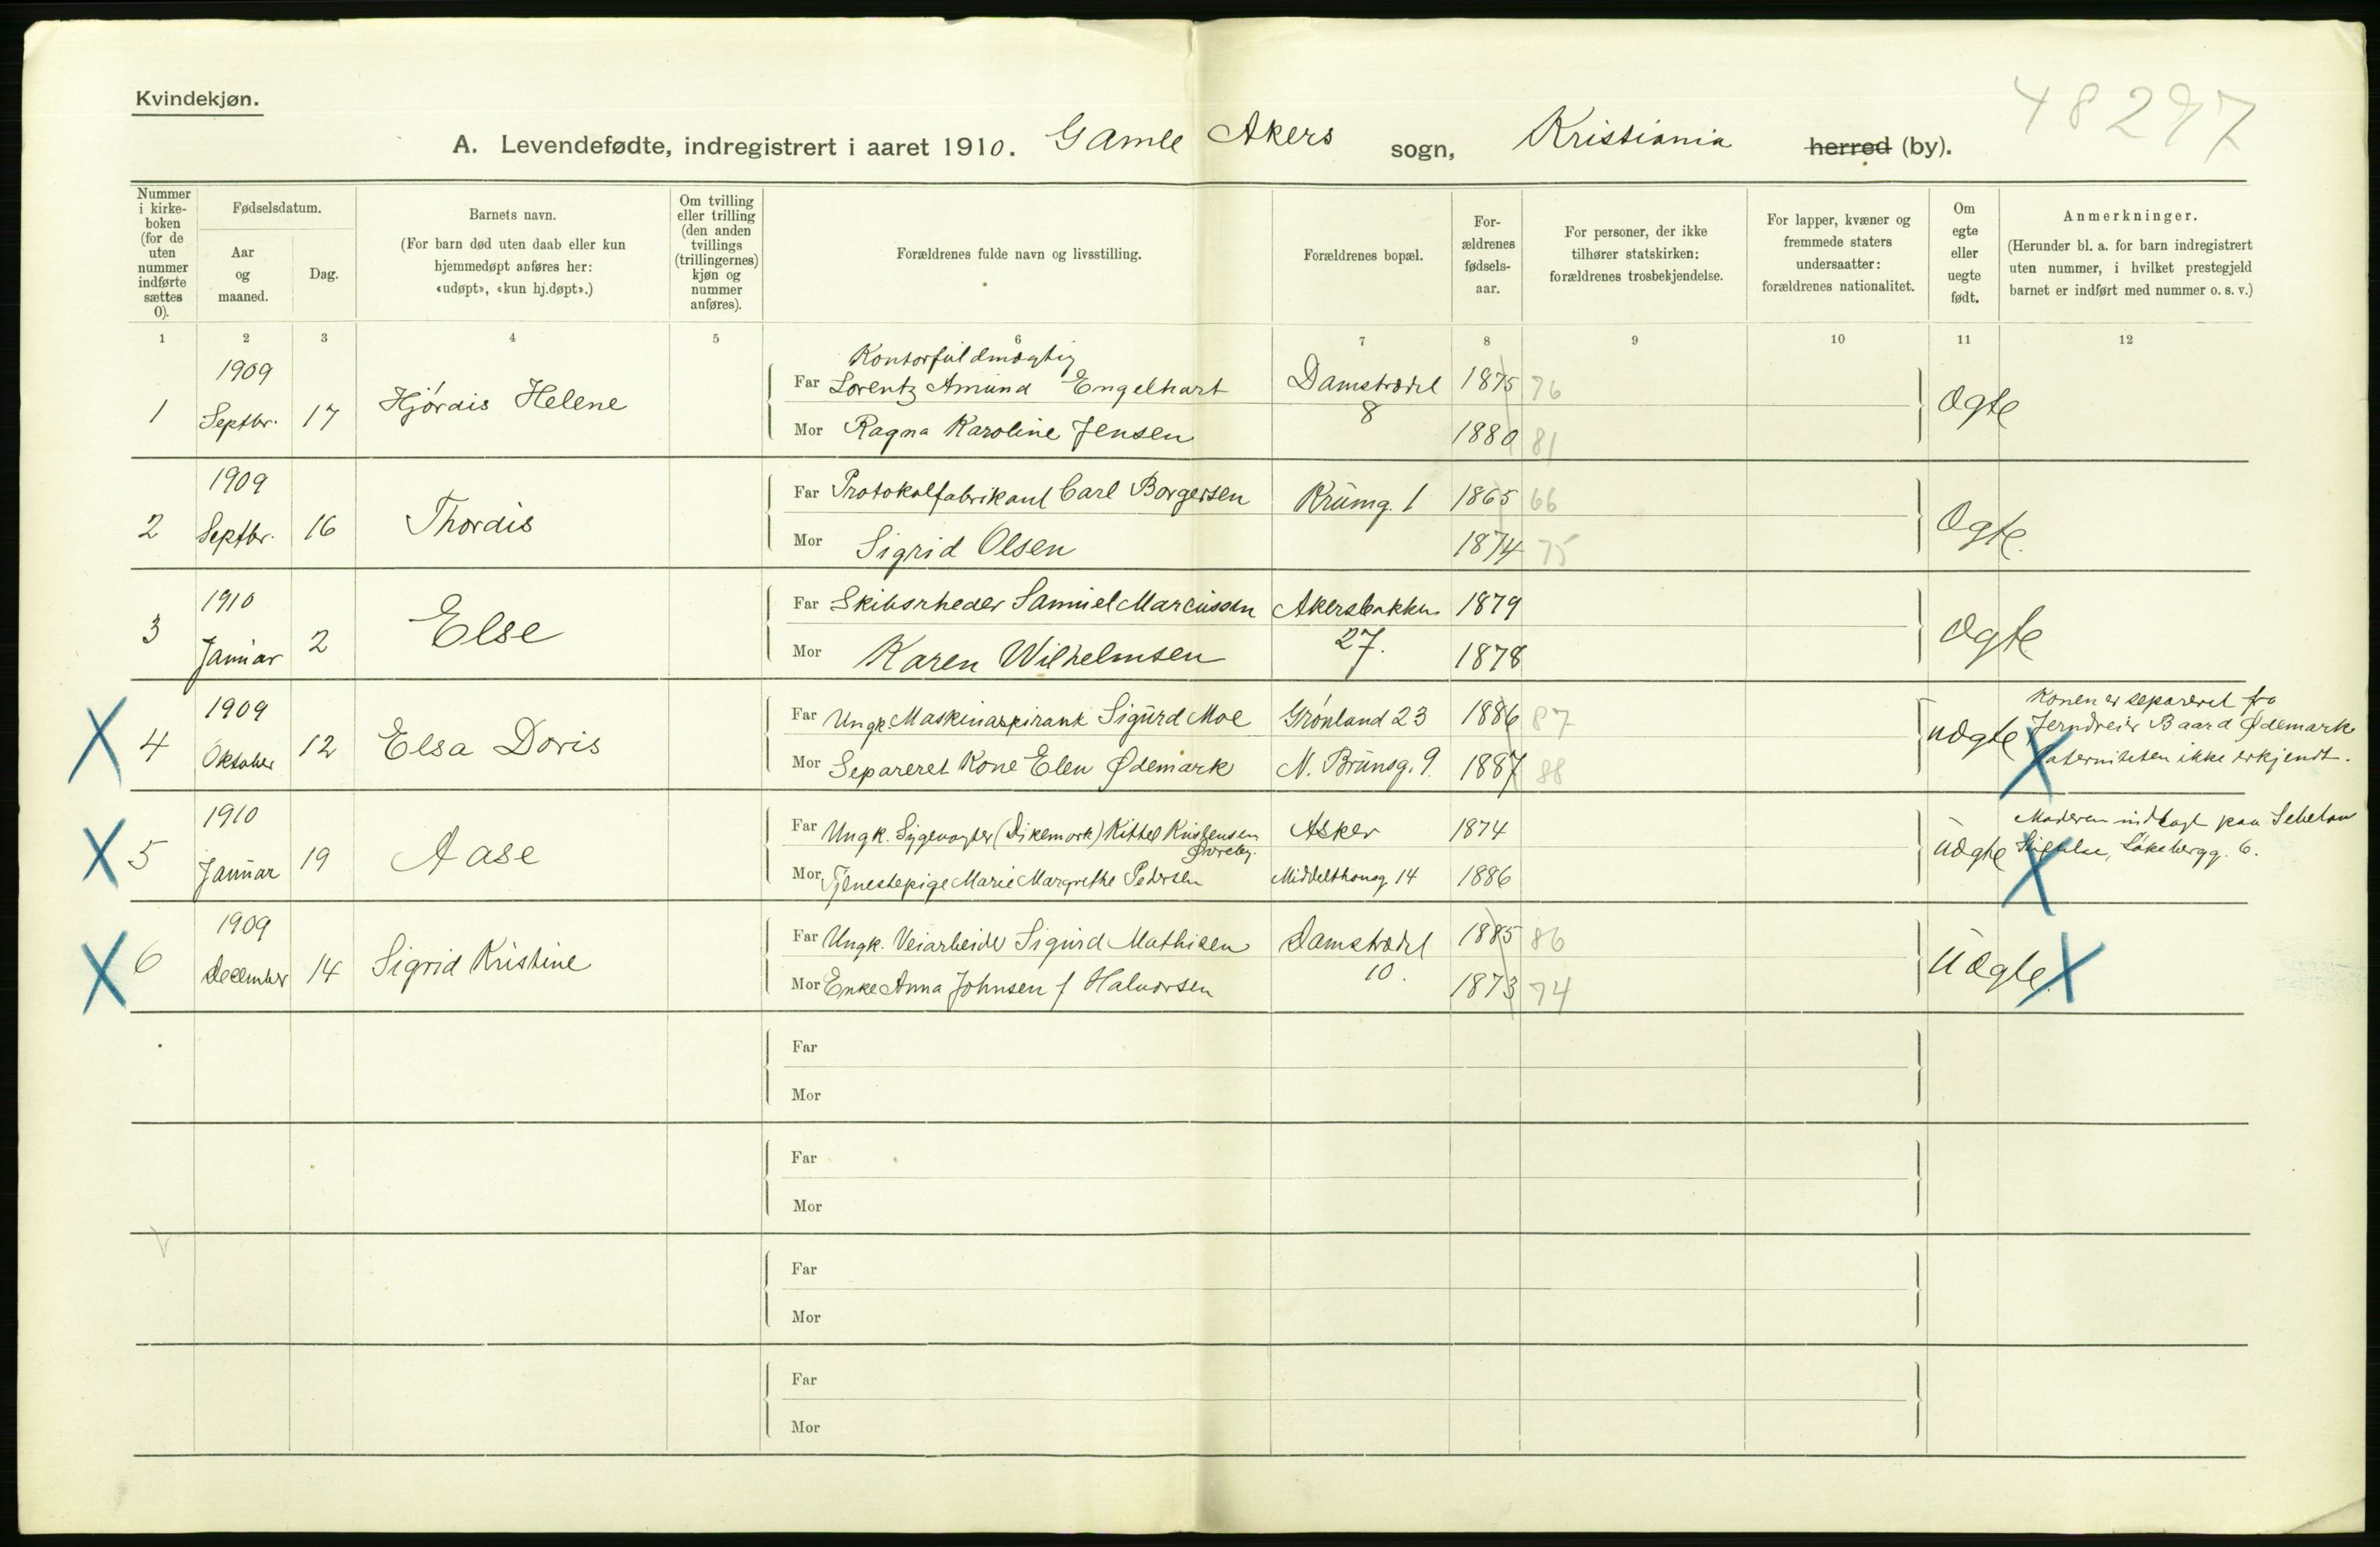 Kvindekjøn.
48297
A. Levendefødte, indregistrert i aaret 1910. Gamle Akers sogn, Kristiania herred (by).
Nummer i kirke-boken (for de uten nummer indførte sættes 0).
Fødselsdatum.
Aar og maaned.
Dag.
Barnets navn.
(For barn død uten daab eller kun hjemmedøpt anføres her: «udøpt», «kun hj.døpt».)
Om tvilling eller trilling (den anden tvillings (trillingernes) kjøn og nummer anføres).
Forældrenes fulde navn og livsstilling.
Forældrenes bopæl.
For-ældrenes fødsels-aar.
For personer, der ikke tilhører statskirken: forældrenes trosbekjendelse.
For lapper, kvæner og fremmede staters undersaatter: forældrenes nationalitet.
Om egte eller uegte født.
Anmerkninger.
(Herunder bl. a. for barn indregistrert uten nummer, i hvilket prestegjeld barnet er indført med nummer o. s. v.)
1 2 3 4 5 6 7 8 9 10 11 12
1 1909 Septbr. 17 Hjørdis Helene
Kontorfuldmægtig
Far Lorentz Amund Engelhart Damstrædet 8 1875 76 Ægte
Mor Ragna Karoline Jensen 1880 81
2 1909 Septbr. 16 Thordis
Far Protokolfabrikant Carl Borgersen Krumg. 1 1865 66 Ægte.
Mor Sigrid Olsen 1874 75
3 1910 Januar 2 Else
Far Skibsrheder Samuel Marcussen Akersbakken 27. 1879 Ægte
Mor Karen Wilhelmsen 1878
X 4 1909 Oktober 12 Elsa Doris
Far Ungk. Maskinaspirant Sigurd Moe Grønland 23 1886 87 Uægte X
Mor Separeret Kone Elen Ødemark N. Brunsg. 9. 1887 88
Konen er separeret fra
Jerndreier Baard Ødemark
Paterniteten ikke erkjendt.
X 5 1910 Januar 19 Aase
Far Ungk. Sygevogter (Dikemark) Kittel Kristensen
Asker 1874 Uægte X
Mor Tjenestepige Marie Margrethe Pedersen Middelthunsg 14 1886
Moderen indlagt paa
6.
X 6 1909 December 14 Sigrid Kristine
Far Ungk. Veiarbeider Sigurd Mathisen Damstrædet 10. 1885 86 Uægte. X
Mor Enke Anna Johnsen f Halvorsen 1873 74
Far
Mor
Far
Mor
Far
Mor
Far
Mor